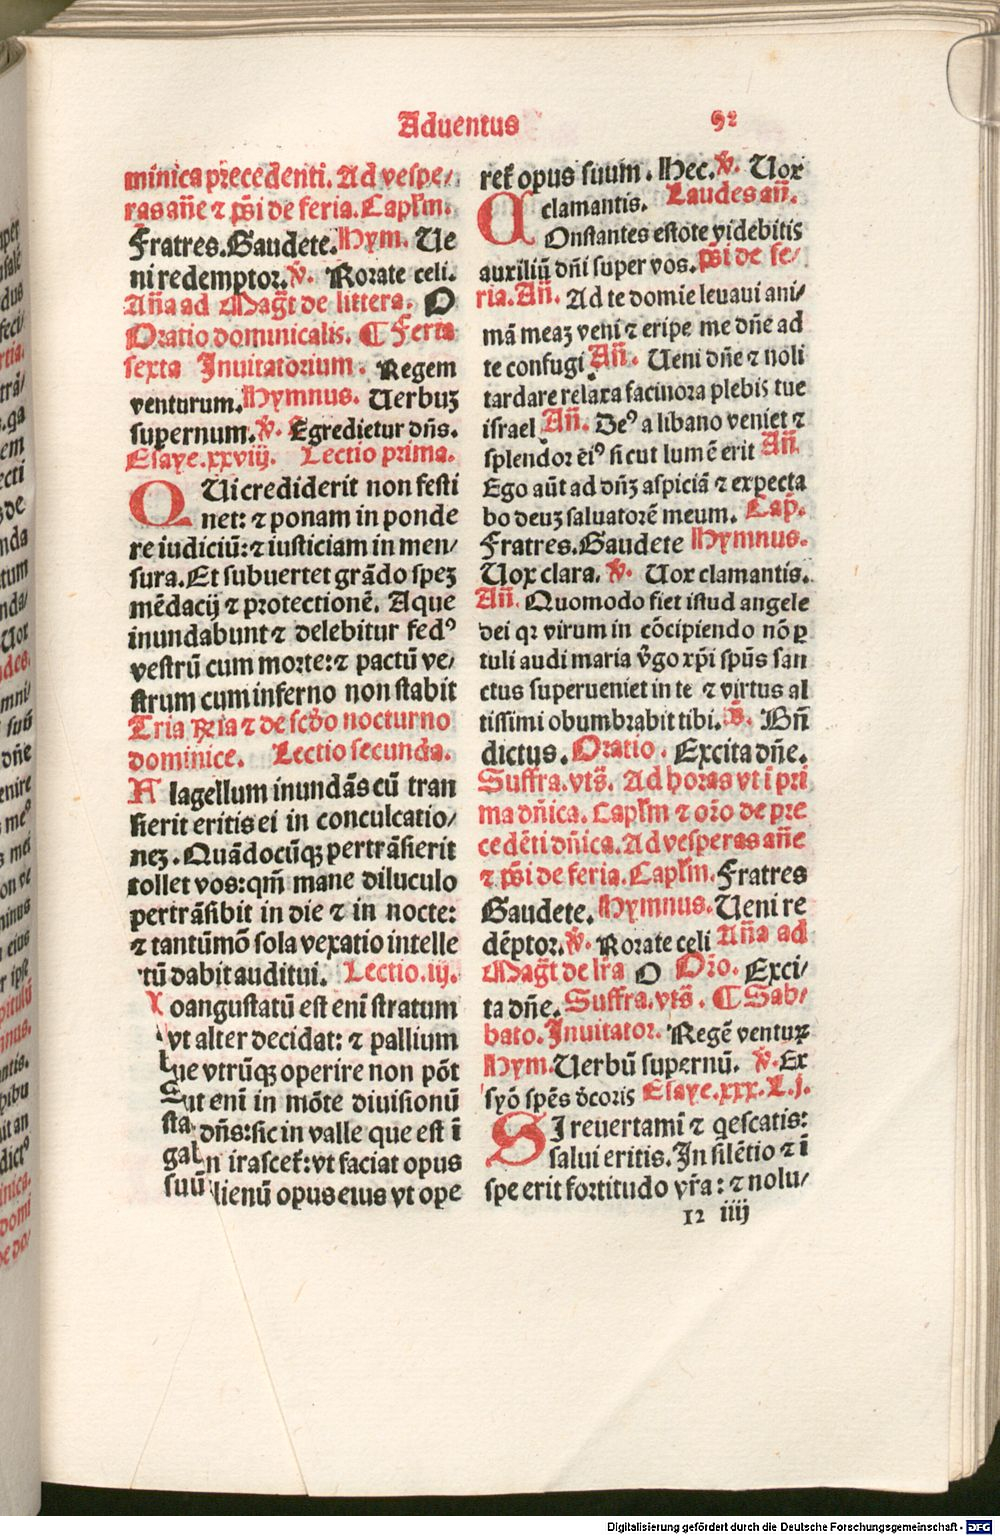 Aduentus
92
minica precedenti. Ad vespe/
ras añe ⁊ ps̄i de feria. Capl'm.
Fratres. Gaudete. Hym. Ue
ni redemptor. v̄. Rorate celi.
Aña ad Mag̃t de littera. O
Oratio dominicalis. ¶ Feria
sexta Inuitatorium. Regem
venturum. Hymnus. Uerbuꝫ
supernum. v̄. Egredietur dñs.
Esaye. xxviij. Lectio prima.
QUi crediderit non festi
net: ⁊ ponam in ponde
re iudiciū: ⁊ iusticiam in men/
sura. Et subuertet grādo speꝫ
mēdacij ⁊ protectionē. Aque
inundabunt ⁊ delebitur fedꝰ
vestrū cum morte: ⁊ pactū ve/
strum cum inferno non stabit
Tria ꝶia ⁊ de scd̄o nocturno
dominice. Lectio secunda.
Flagellum inundās cū tran
sierit eritis ei in conculcatio/
neꝫ. Quādocūqꝫ pertrāsierit
tollet vos: qm̄ mane diluculo
pertrāsibit in die ⁊ in nocte:
⁊ tantūmō sola vexatio intelle
tū dabit auditui. Lectio. iij.
oangustatū est enī stratum
vt alter decidat: ⁊ pallium
ue vtrūqꝫ operire non pōt
ut enī in mōte diuisionū
sta dñs: sic in valle que est ī
gab n irascet̄: vt faciat opus
suū lienū opus eius vt ope
ret̄ opus suum. Hec. v̄. Uox
clamantis. Laudes añ.
COnstantes estote videbitis
auxiliū dñi super vos. ps̄i de fe/
ria. Añ. Ad te domie leuaui ani/
mā meaꝫ veni ⁊ eripe me dñe ad
te confugi Añ. Ueni dñe ⁊ noli
tardare relaxa facinora plebis tue
israel Añ. Deꝰ a libano veniet ⁊
splendor eiꝰ sicut lumē erit Añ
Ego aūt ad dñꝫ aspiciā ⁊ expecta
bo deuꝫ saluatorē meum. Cap̄.
Fratres. Gaudete Hymnus.
Uox clara. v̄. Uox clamantis.
Añ. Quomodo fiet istud angele
dei qꝛ virum in cōcipiendo nō ꝑ
tuli audi maria v̄go xp̄i spūs san
ctus superueniet in te ⁊ virtus al
tissimi obumbrabit tibi. B̄. Bñ
dictus. Oratio. Excita dñe.
Suffra. vts̄. Ad horas vt ī pri
ma dñica. Capl'm ⁊ orō de pre
cedēti dñica. Ad vesperas añe
⁊ ps̄i de feria. Capl'm. Fratres
Gaudete. Hymnus. Ueni re
dēptor. v̄. Rorate celi Aña ad
Mag̃t de lr̄a O Orō. Exci/
ta dñe. Suffra. vts̄. ¶ Sab/
bato. Inuitator. Regē ventuꝝ
Hym. Uerbū supernū. v̄. Ex
syō spēs dc̄oris Esaye. xxx. L. j.
SI reuertamī ⁊ qescatis:
salui eritis. In silētio ⁊ ī
spe erit fortitudo vr̄a: ⁊ nolu/
12 iiij
Digitalisierung gefördert durch die Deutsche Forschungsgemeinschaft - DFG